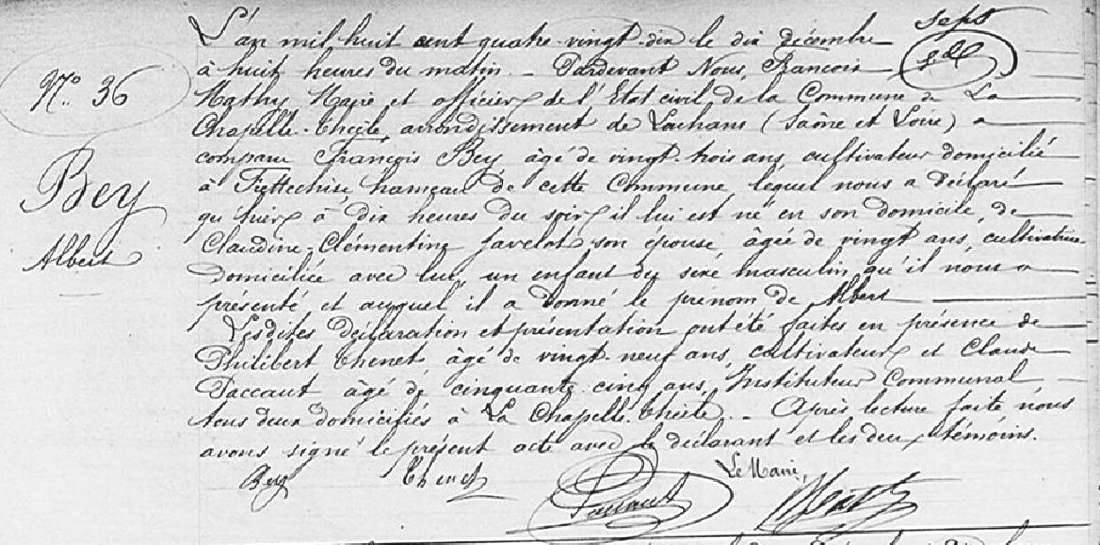 L'an mil huit cent quatre-vingt-dix le dix décembre
à huit heures du matin. - Pardevant Nous, François
Mathy Maire et officier de l'Etat civil de la Commune de La
Chapelle-Thècle, arrondissement de Louhans (Saône et Loire) a
comparu François Bey âgé de vingt-trois ans, cultivateur domicilié
à hameau de cette Commune, lequel nous a déclaré
qu'hier à dix heures du soir il lui est né en son domicile, de
Claudine-Clémentine Javelot son épouse âgée de vingt ans, cultivatrice
domiciliée avec lui, un enfant du sexe masculin qu'il nous a
présenté et auquel il a donné le prénom de Albert
Lesdites déclaration et présentation ont été faites en présence de
Philibert Thenet âgé de vingt-neuf ans, cultivateur et Claude
Paccaut âgé de cinquante-cinq ans, Instituteur Communal,
tous deux domiciliés à La Chapelle-Thècle. - Après lecture faite, nous
avons signé le présent acte avec le déclarant et les deux témoins.
sept
N° 36
Bey
Albert
Bey Thenet Paccaut Le Maire,
Mathy